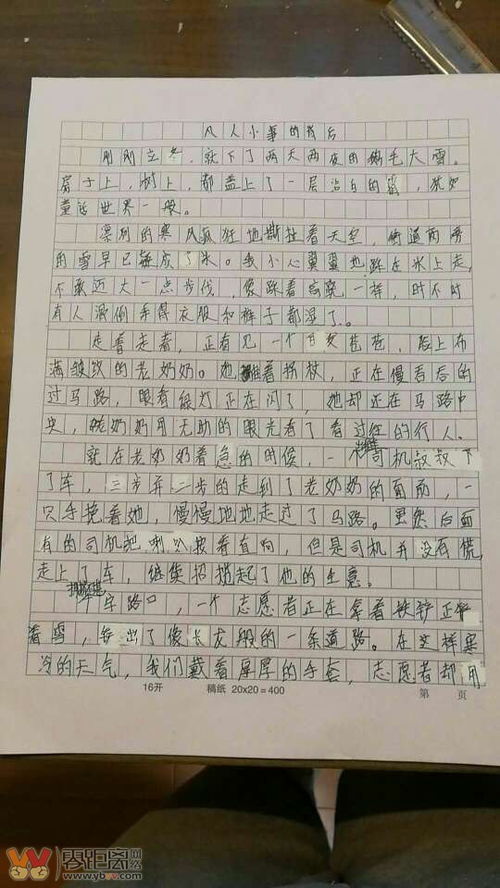 凡人小事的背后
刚刚立冬，就下了两天两夜的鹅毛大雪。
房子上，树上，都盖上了一层洁白的雪，犹如
童话世界一般。
凛冽的寒风疯狂地撕扯着天空，街道两旁
用雪早已变成了冰。我小心翼翼地踩在冰上走，
不敢迈大一点步伐，像踩着一样，时不时
有人滑倒手得衣服和裤子都湿了。
走着走着，正看见一个白发苍苍，脸上布
满皱纹的老奶奶。她拄着拐杖，正在慢吞吞的
过马路，眼看绿灯正在闪了，她却还在马路中
央，老奶奶用无助的眼光看了看过往的行人。
就在老奶奶着急的时候，一个司机叔叔下
了车，三步并二步的走到了老奶奶的面前，一
只手挽着她，慢慢地地走过了马路。虽然后面
有的司机把喇叭按着直响，但是司机并没有慌，
走上了车，继续招揽起了他的生意。
十字路口，一个志愿者正在拿着铁铲正铲
着雪，铲出了像长龙般的一条道路。在这样寒
冷的天气，我们戴着厚厚的手套，志愿者却用
16开 稿纸 20x20=400 第 页
零距离网络
www.ybvv.com